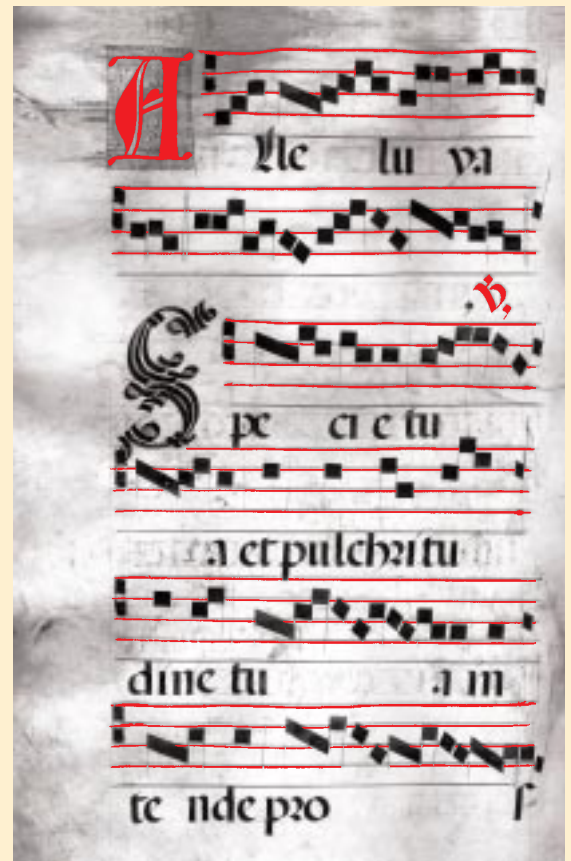 Alle lu ya
℣.
Spe ci e tu
a et pulchritu
dine tu a in
te nde pro s